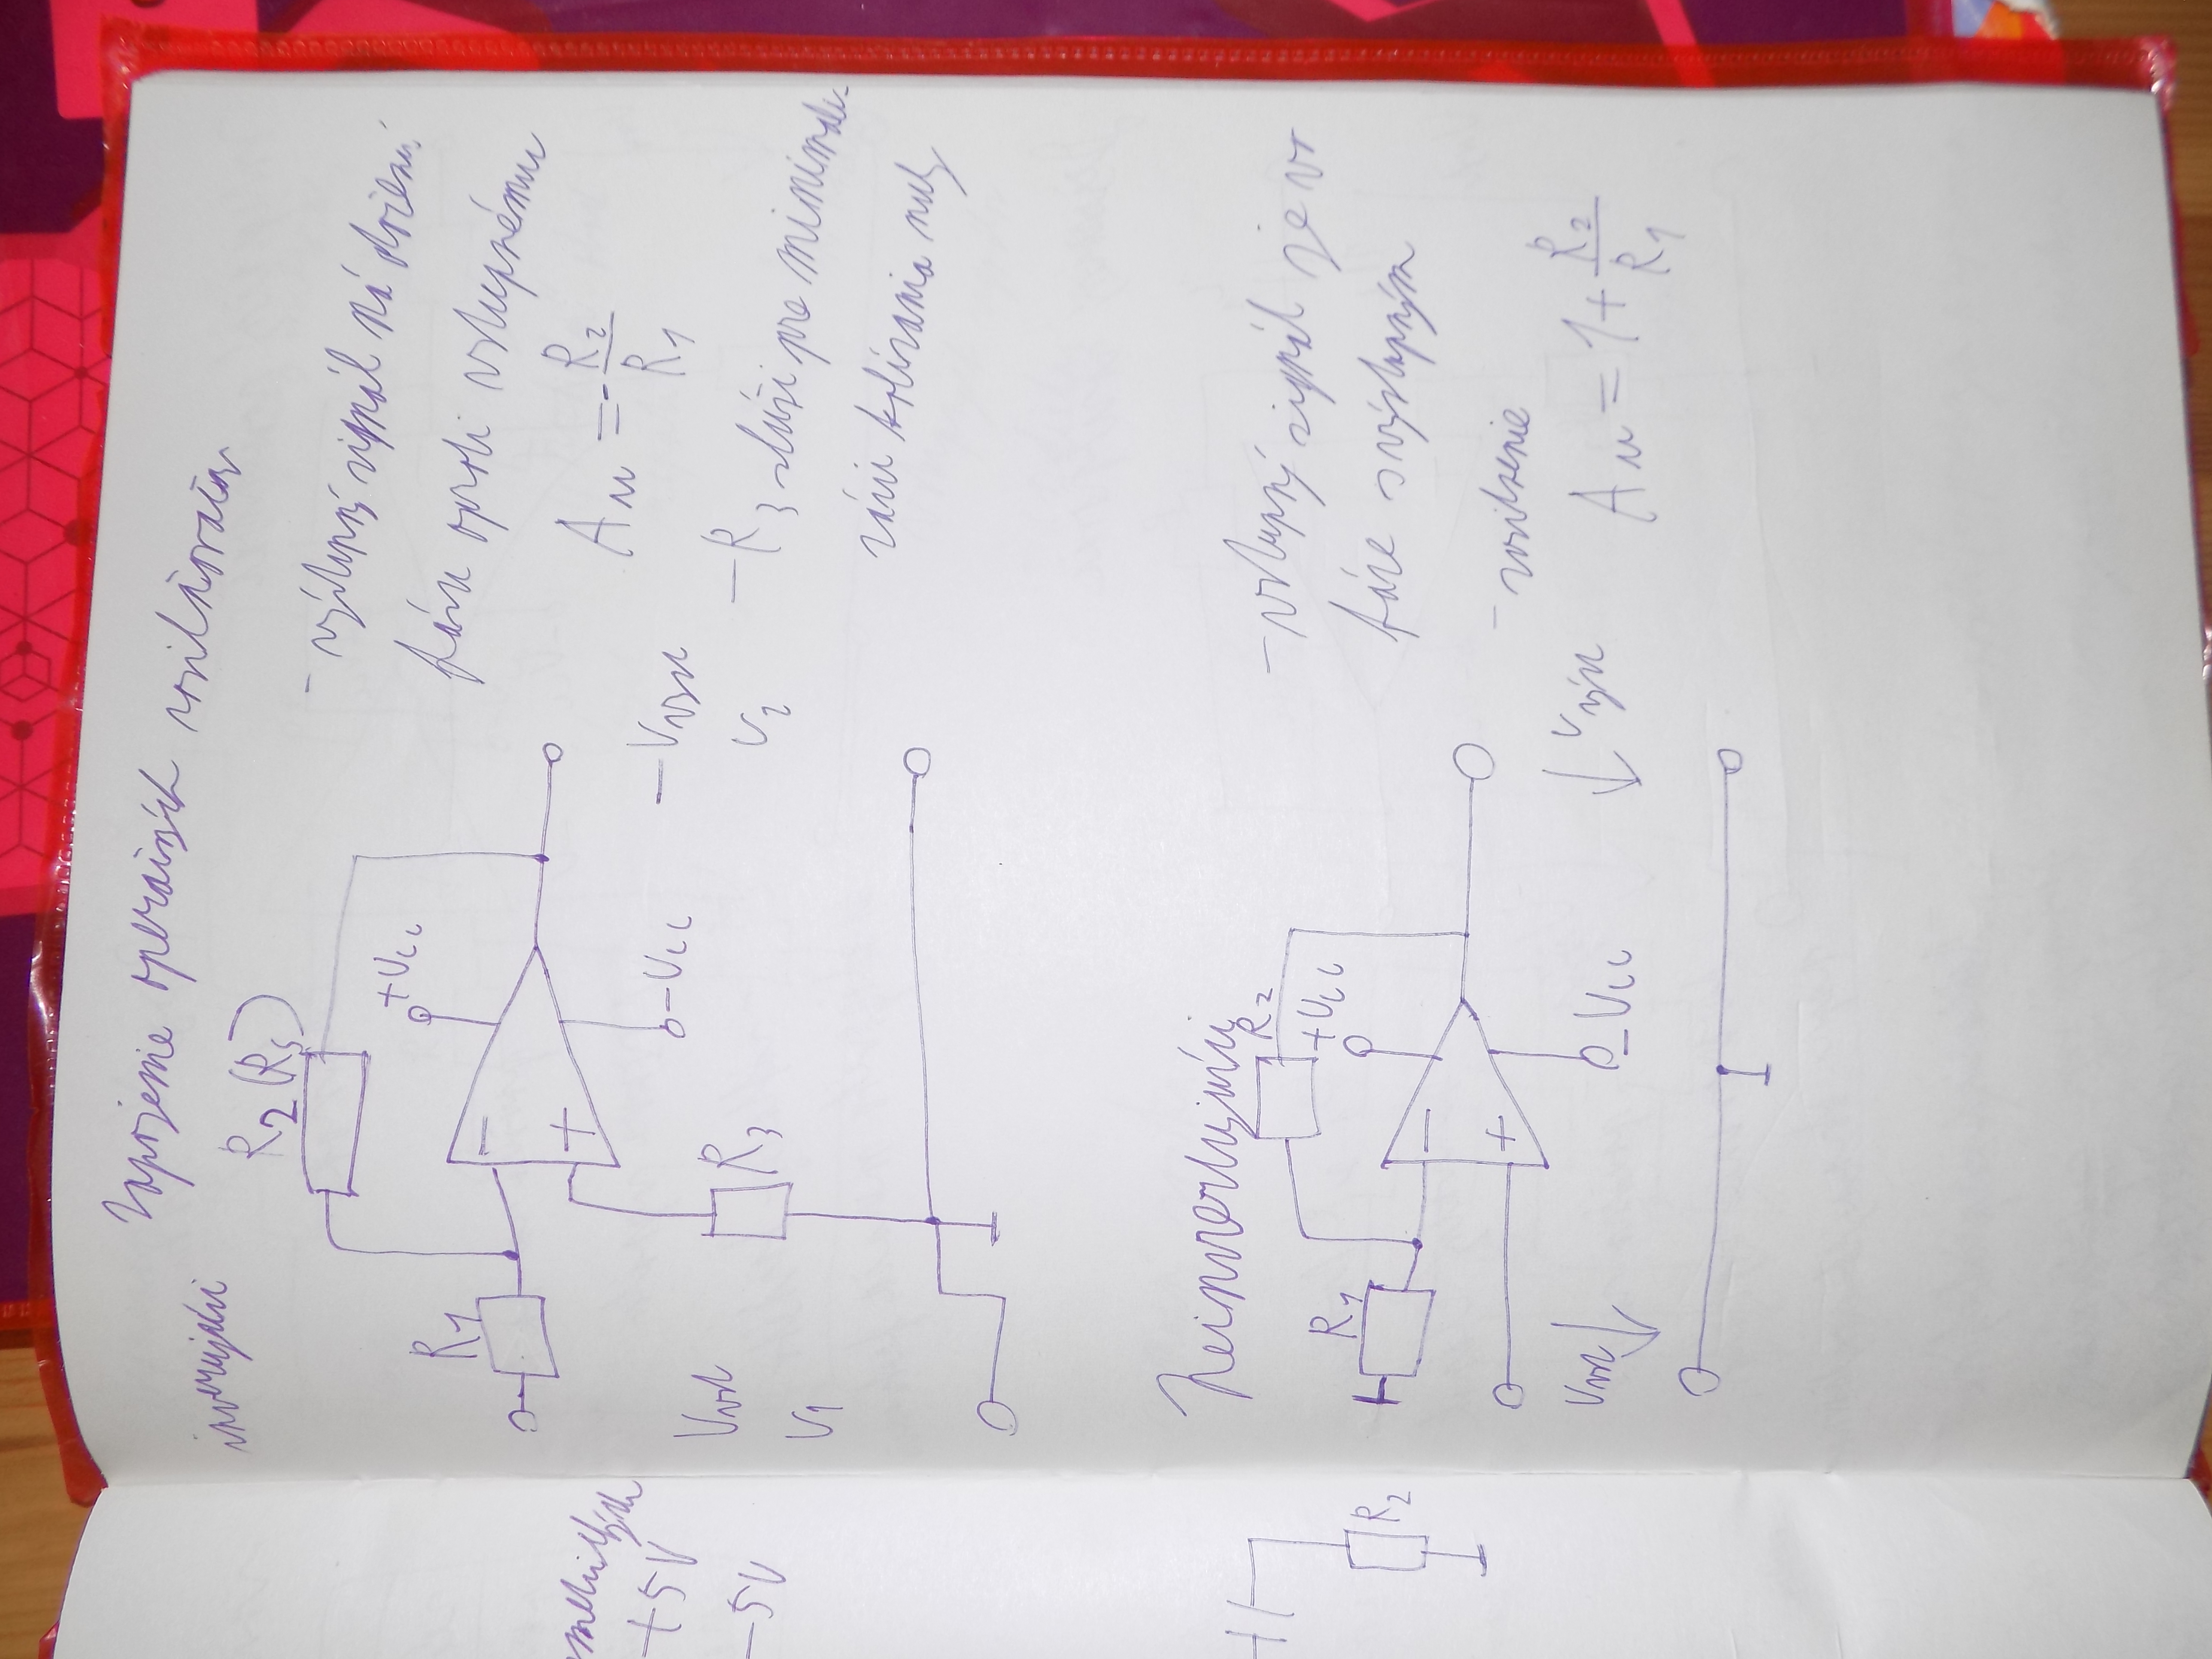 Zapojenie operačných zosilňovačov
invertujúci
R2 (R5)
+Ucc
R1
-Ucc
R3
Uvst
U1
- Uvýst
U2
- výstupný signál má otočenú
fázu oproti vstupnému
Au = - R2
R1
- R3 - slúži pre minimali-
záciu kolísania nuly
Neinvertujúci
R2
+Ucc
R1
- Ucc
Uvst
Uvýst
- vstupný signál je vo
fáze s výstupným
- zosilnenie
Au = 1 + R2
R1
+5V
-5V
R2